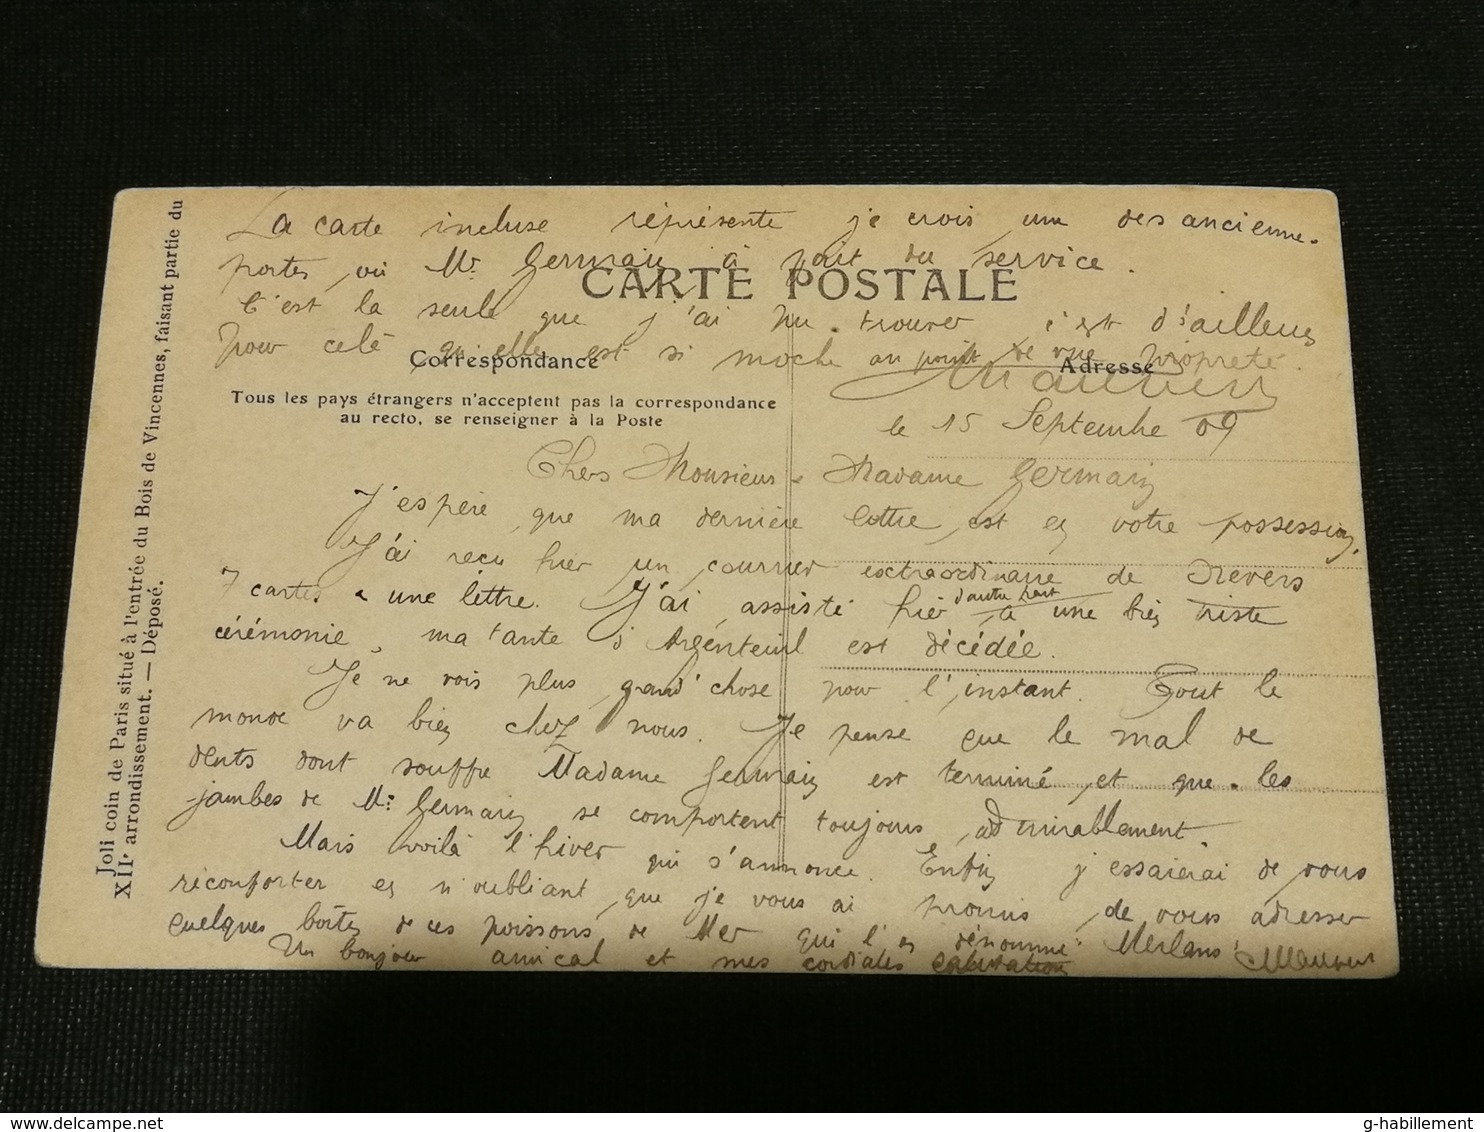 La carte incluse réprésente je crois une des ancienne.
portes, où Mr. Germain à fait du service.
CARTE POSTALE
C'est la seule que j'ai pu trouver c'est d'ailleurs
pour celà qu'elle est si moche au point de vue propreté.
Correspondance
Adresse
Tous les pays étrangers n'acceptent pas la correspondance
au recto, se renseigner à la Poste
le 15 Septembre 09
Chers Monsieur & Madame Germain
J'espère que ma dernière lettre est en votre possession,
J'ai reçu hier un courrier exctraordinaire de Nevers
7 cartes & une lettre. J'ai assisté hier d'autre part à une bien triste
cérémonie, ma tante d'Argenteuil est décédée.
Je ne vois plus grand'chose pour l'instant. Tout le
monde va bien chez nous. Je pense que le mal de
dents dont souffre Madame Germain est terminé, et que les
jambes de Mr. Germain se comportent toujours admirablement
Mais voilà l'hiver qui s'annonce. Enfin j'essaierai de vous
réconforter en n'oubliant que je vous ai promis de vous adresser
quelques boîtes de ces poissons de Mer qui l'on dénomme "Merlans"
Un bonjour amical et mes cordiales salutations
Joli coin de Paris situé à l'entrée du Bois de Vincennes, faisant partie du
XIIe arrondissement. — Déposé.
g-habillement